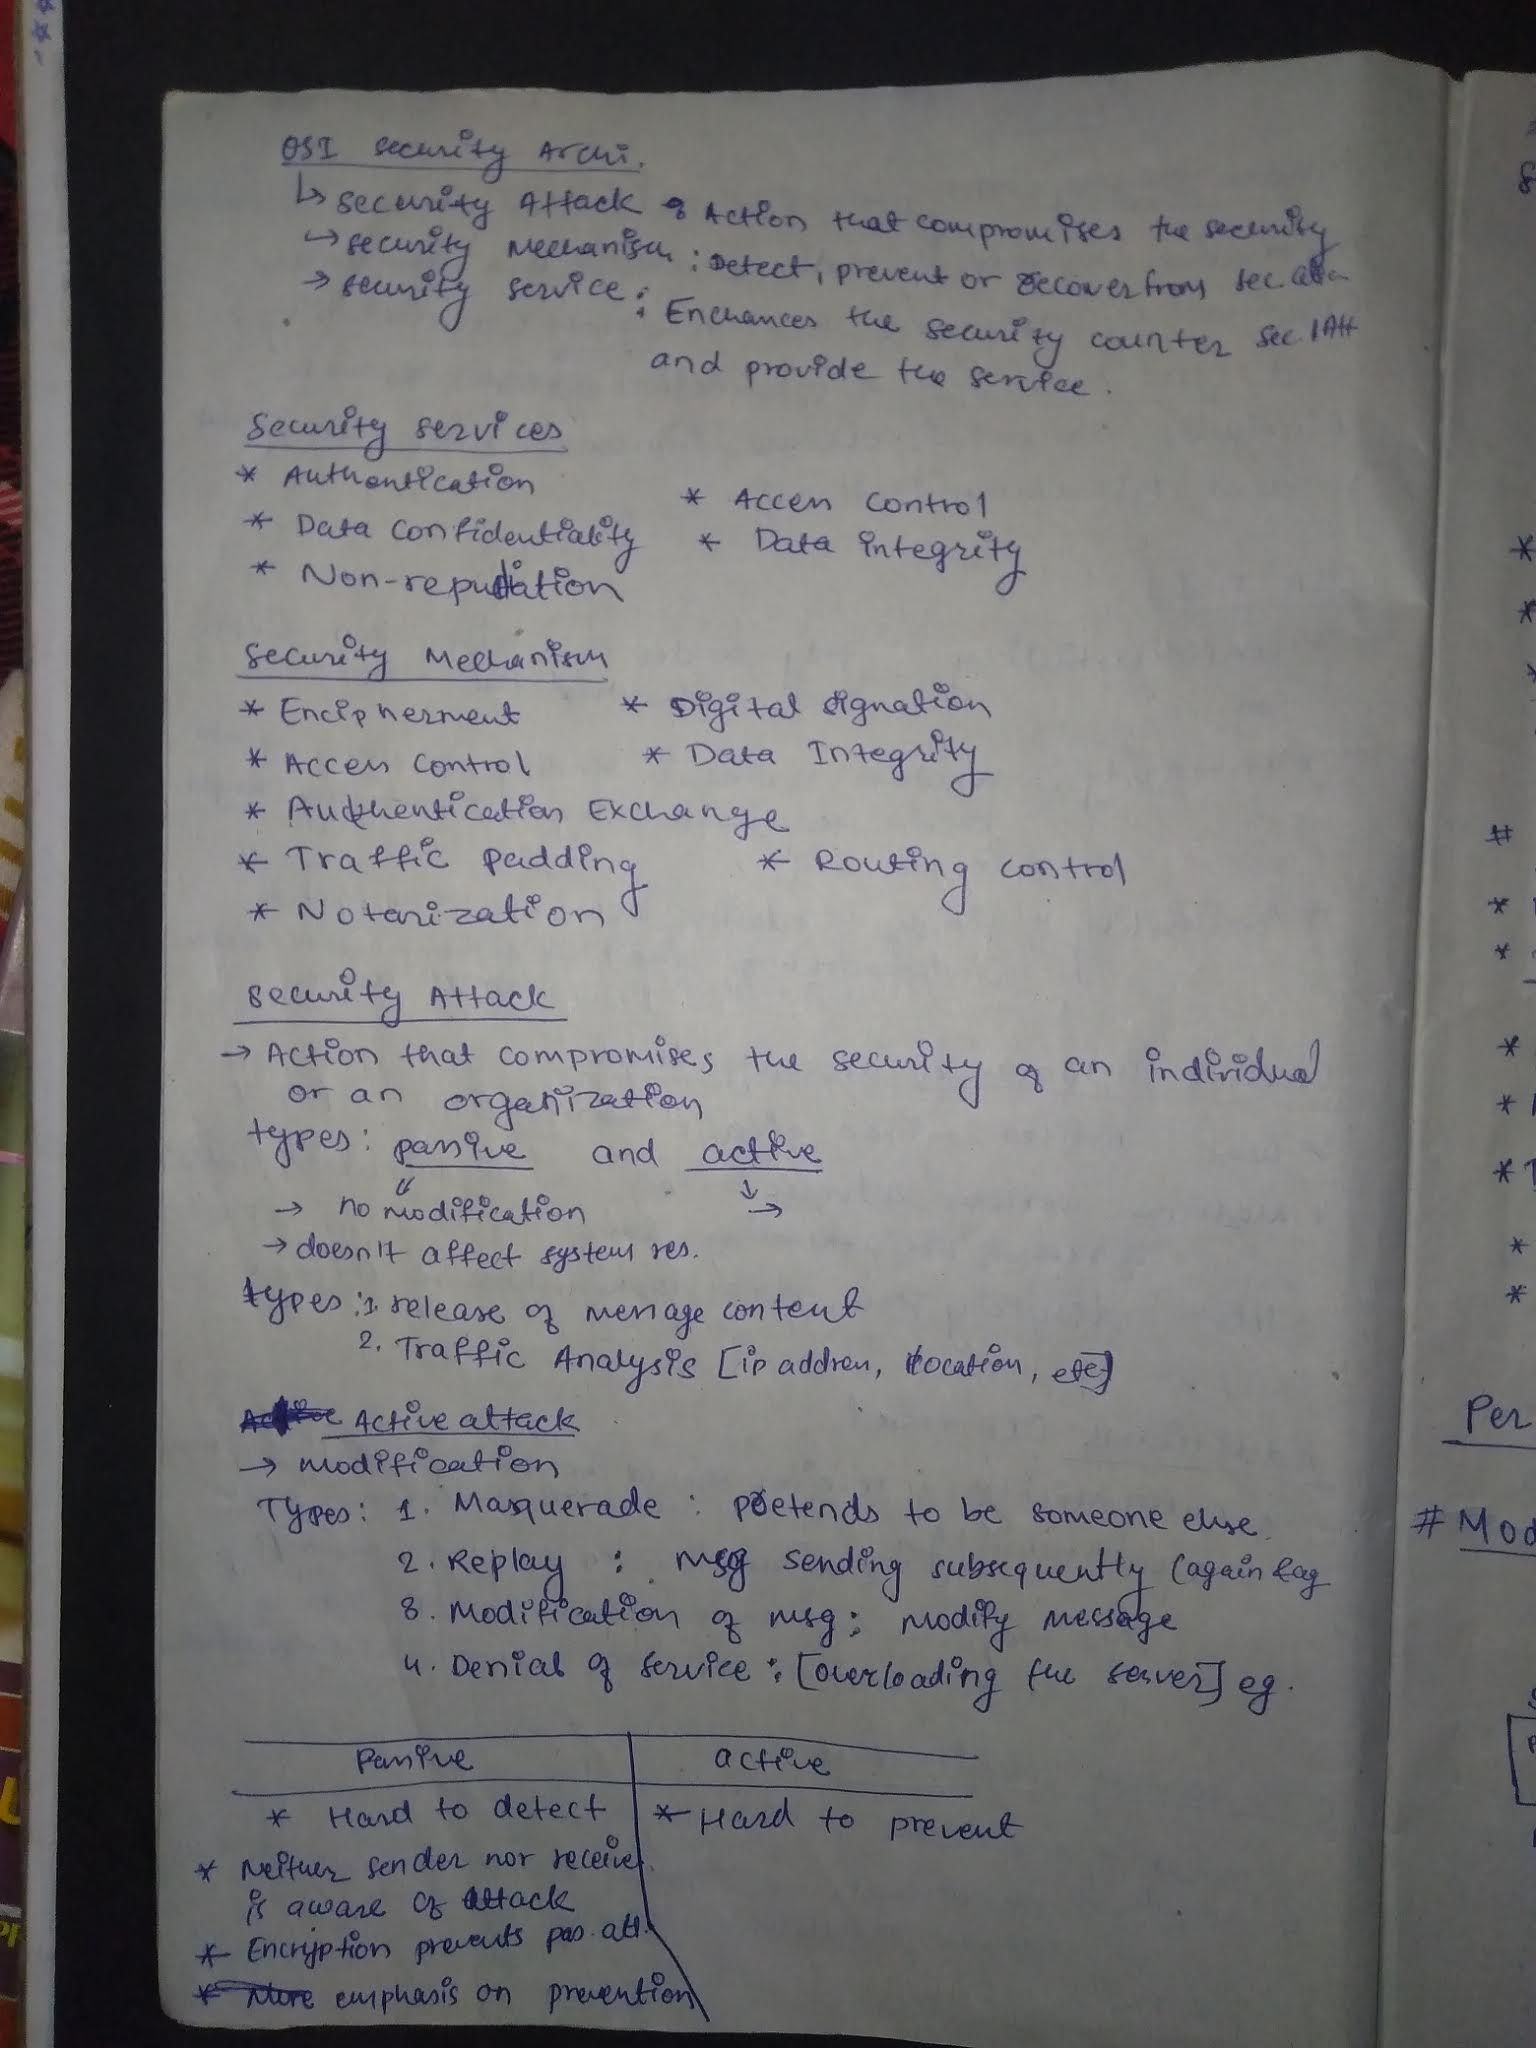 OSI Security Archi.
↳ Security Attack : Action that compromises the security
→ security Mechanism : Detect, prevent or recover from sec.
→ security service : Enchances the security counter sec. Att
and provide the service.
Security services
* Authentication * Access control
* Data confidentiality * Data integrity
* Non-repudiation
Security Mechanism
* Encipherment * Digital signation
* Access control * Data Integrity
* Authentication Exchange
* Traffic padding * Routing control
* Notarization
Security Attack
→ Action that compromises the security of an individual
or an organization
types: passive and active
→ no modification →
→ doesn't affect system res.
types: 1. release of message content
2. Traffic Analysis [ip address, location, etc]
Active attack
→ modification
Types: 1. Masquerade : pretends to be someone else.
2. Replay : msg sending subsequently (again &ag
3. Modification of msg: modify message
4. Denial of service : [overloading the server] eg.
Passive active
* Hard to detect * Hard to prevent
* Neither sender nor receiver
is aware of attack
* Encryption prevents pas. att.
* emphasis on prevention
Per
# Mod